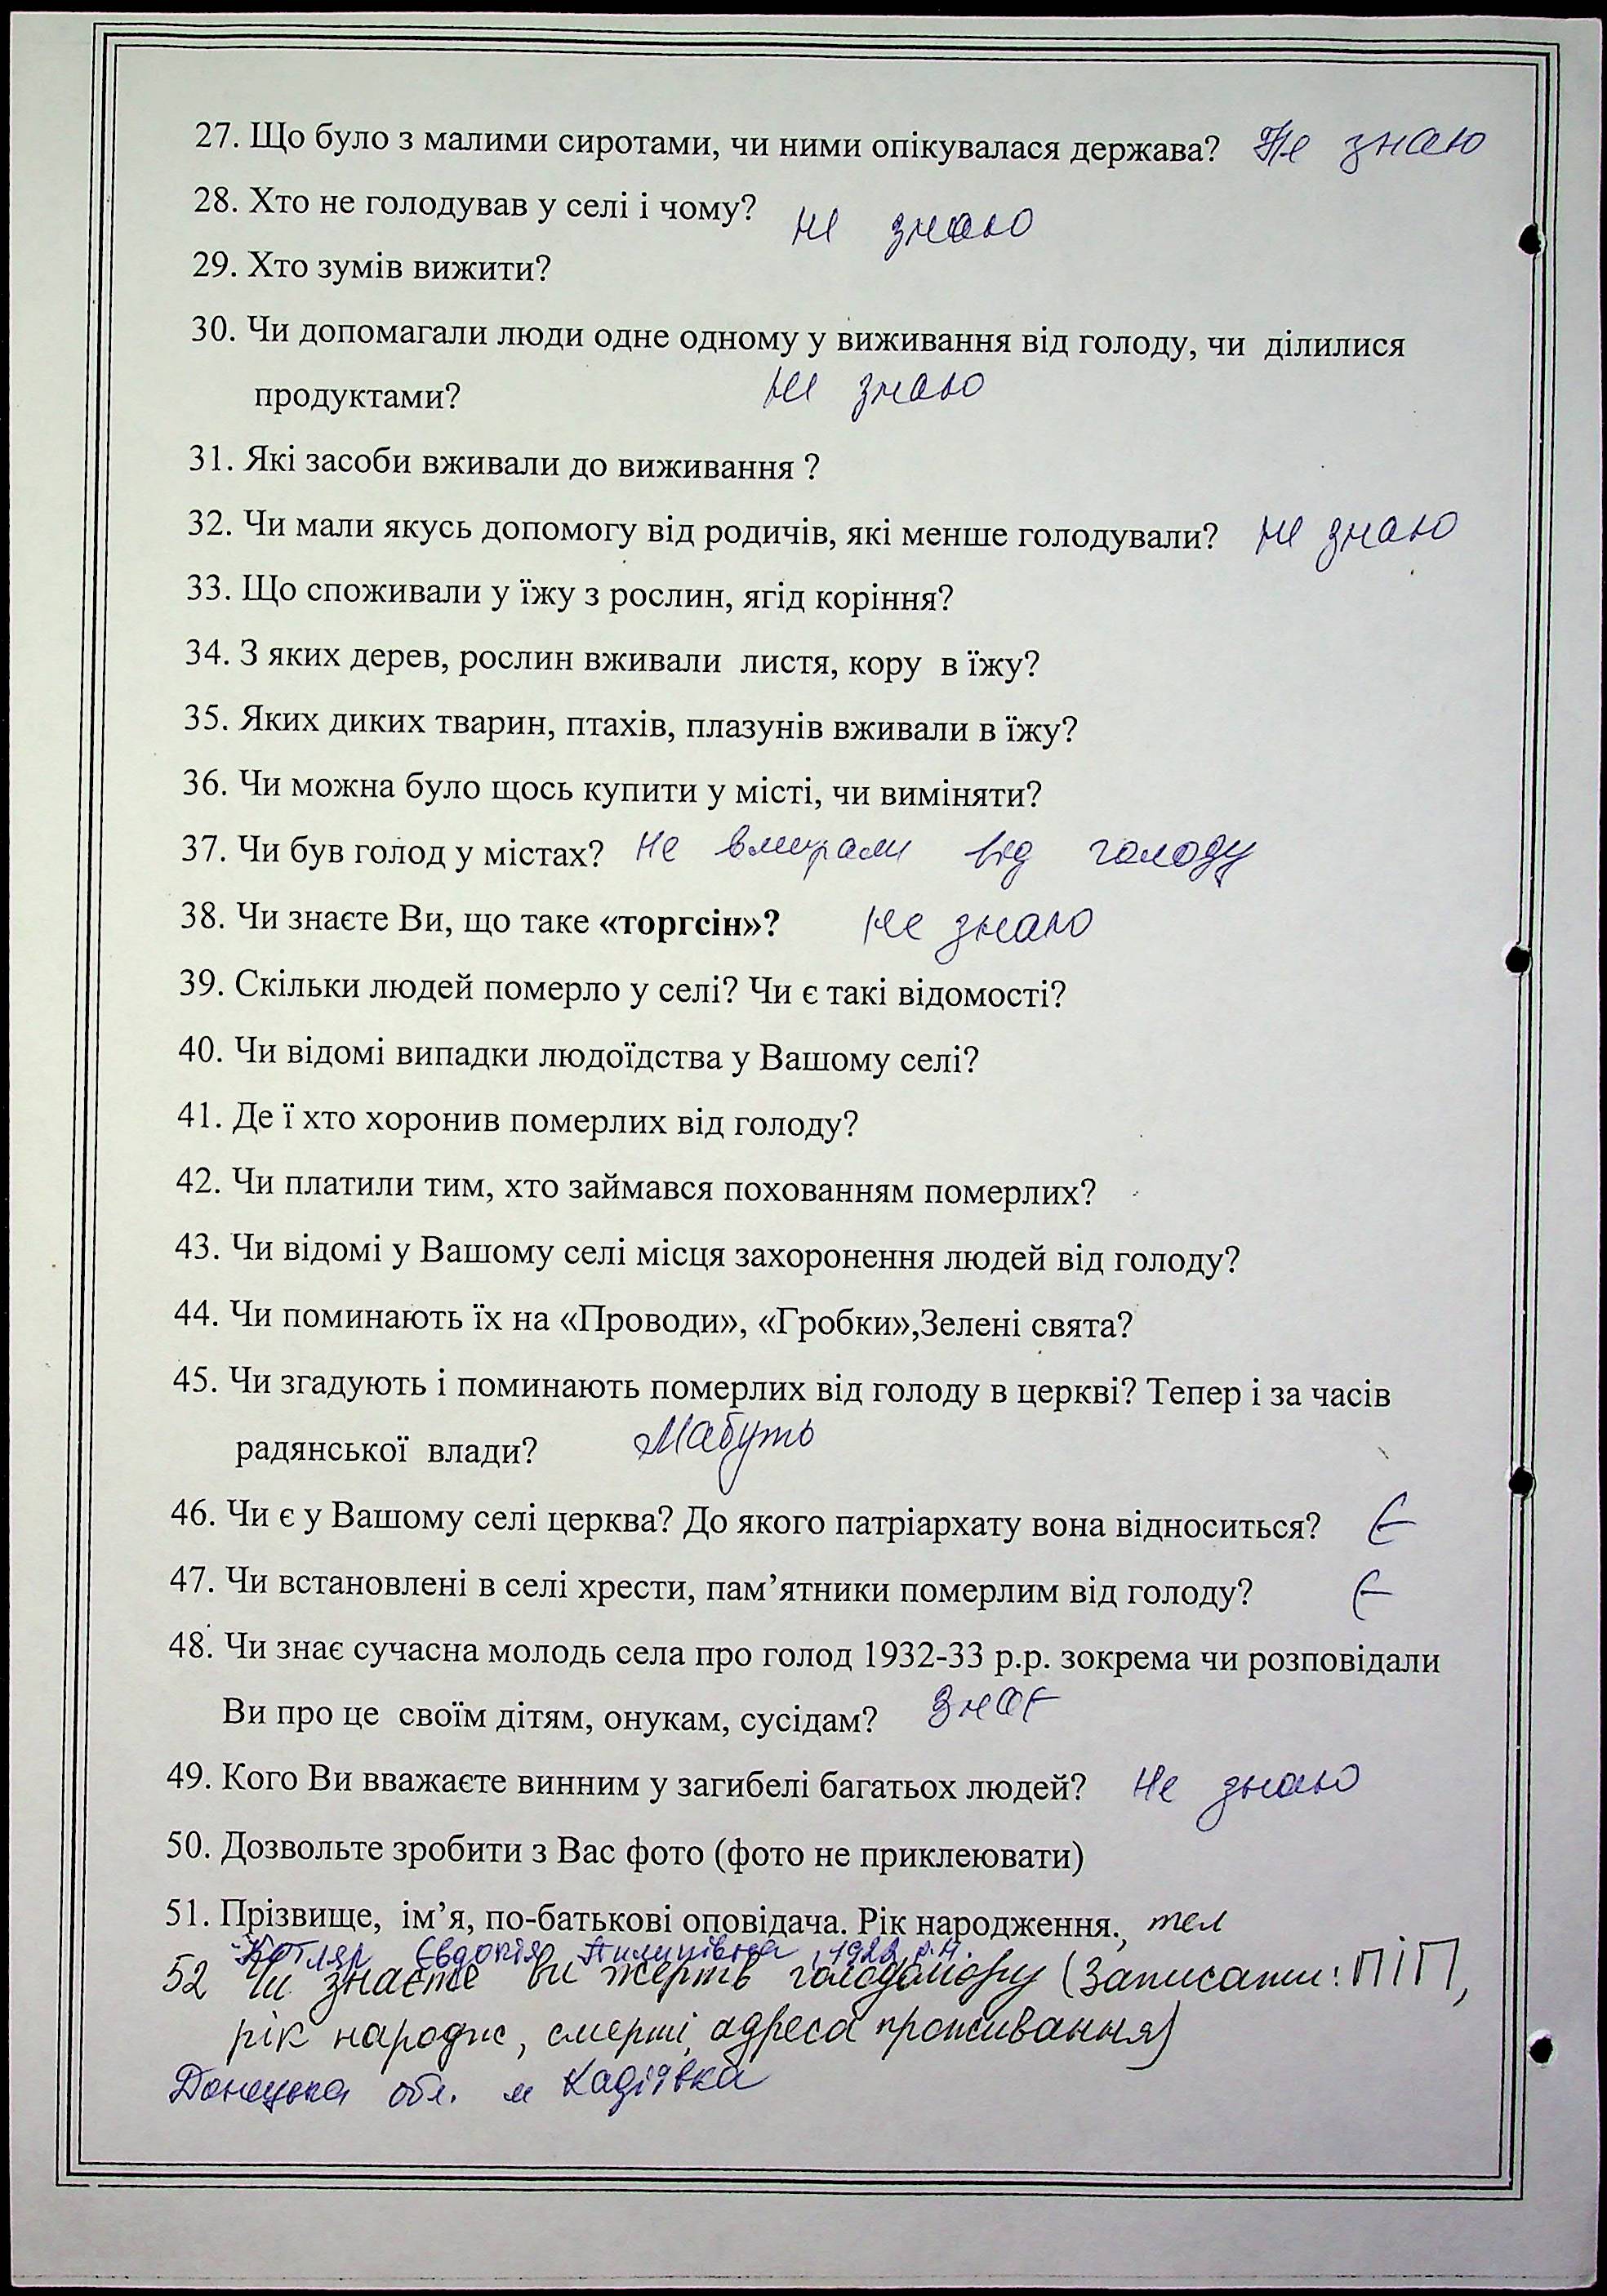 27. Що було з малими сиротами, чи ними опікувалася держава? Не знаю
28. Хто не голодував у селі і чому? не знаю
29. Хто зумів вижити?
30. Чи допомагали люди одне одному у виживання від голоду, чи ділилися
продуктами? не знаю
31. Які засоби вживали до виживання ?
32. Чи мали якусь допомогу від родичів, які менше голодували? не знаю
33. Що споживали у їжу з рослин, ягід коріння?
34. З яких дерев, рослин вживали листя, кору в їжу?
35. Яких диких тварин, птахів, плазунів вживали в їжу?
36. Чи можна було щось купити у місті, чи виміняти?
37. Чи був голод у містах? Не вмирали від голоду
38. Чи знаєте Ви, що таке «торгсін»? Не знаю
39. Скільки людей померло у селі? Чи є такі відомості?
40. Чи відомі випадки людоїдства у Вашому селі?
41. Де ї хто хоронив померлих від голоду?
42. Чи платили тим, хто займався похованням померлих?
43. Чи відомі у Вашому селі місця захоронення людей від голоду?
44. Чи поминають їх на «Проводи», «Гробки»,Зелені свята?
45. Чи згадують і поминають померлих від голоду в церкві? Тепер і за часів
радянської влади? Мабуть
46. Чи є у Вашому селі церква? До якого патріархату вона відноситься? Є
47. Чи встановлені в селі хрести, пам’ятники померлим від голоду? Є
48. Чи знає сучасна молодь села про голод 1932-33 р.р. зокрема чи розповідали
Ви про це своїм дітям, онукам, сусідам? Знає
49. Кого Ви вважаєте винним у загибелі багатьох людей? Не знаю
50. Дозвольте зробити з Вас фото (фото не приклеювати)
51. Прізвище, ім’я, по-батькові оповідача. Рік народження., тел
Котляр Євдокія Пилипівна, 1922 р.н.
52 Чи знаєте ви жертв голодомору (Записати: ПІП,
рік народж, смерті, адреса проживання)
Донецька обл. м Кадіївка